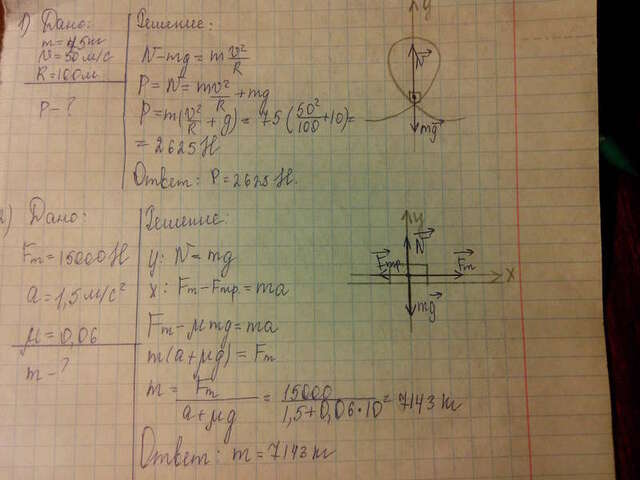 1) Дано:
m = 75 кг
v = 50 м/с
R = 100 м
P - ?
Решение:
N - mg = m v²/R
P = N = mv²/R + mg
P = m(v²/R + g) = 75 (50²/100 + 10) =
= 2625 Н
Ответ: P = 2625 Н.
y
N
mg
2) Дано:
Fт = 15000 Н
a = 1,5 м/с²
μ = 0,06
m - ?
Решение:
y: N = mg
x: Fт - Fтр = ma
Fт - μmg = ma
m(a + μg) = Fт
m = Fт/(a + μg) = 15000/(1,5 + 0,06·10) = 7143 кг
Ответ: m = 7143 кг
y
N
Fтр
Fт
x
mg